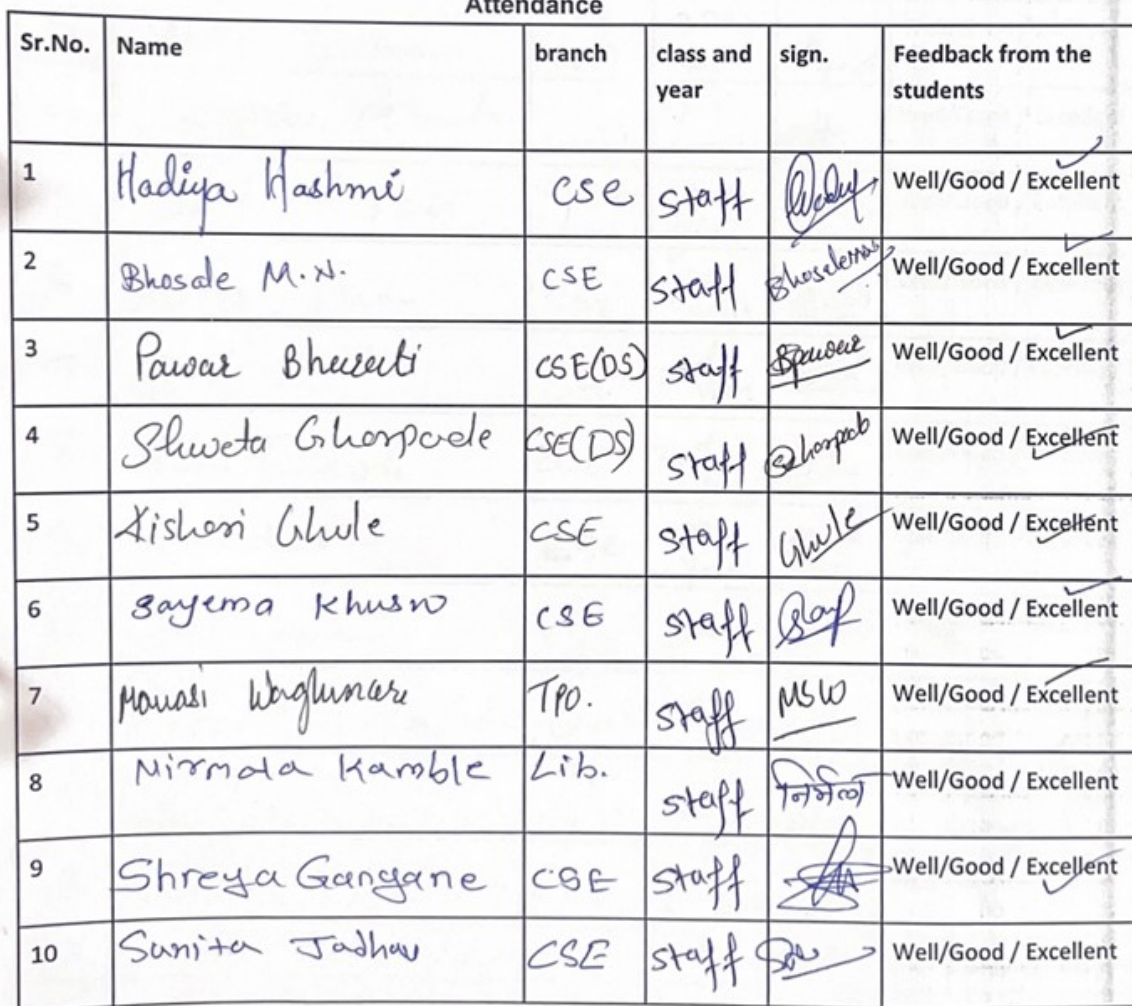 Attendance
Sr.No. Name branch class and year sign. Feedback from the students
1 Hadiya Hashmi CSE staff Well/Good / Excellent
2 Bhosale M.N. CSE staff Bhosalemn Well/Good / Excellent
3 Pawar Bharati CSE(DS) staff Bpawar Well/Good / Excellent
4 Shweta Ghorpade CSE(DS) staff Well/Good / Excellent
5 Kishori Ghule CSE staff Ghule Well/Good / Excellent
6 Sayema Khusro CSE staff Well/Good / Excellent
7 Manasi Waghmare TPO. staff MSW Well/Good / Excellent
8 Nirmala Kamble Lib. staff Well/Good / Excellent
9 Shreya Gangane CSE staff Well/Good / Excellent
10 Sunita Jadhav CSE staff Well/Good / Excellent